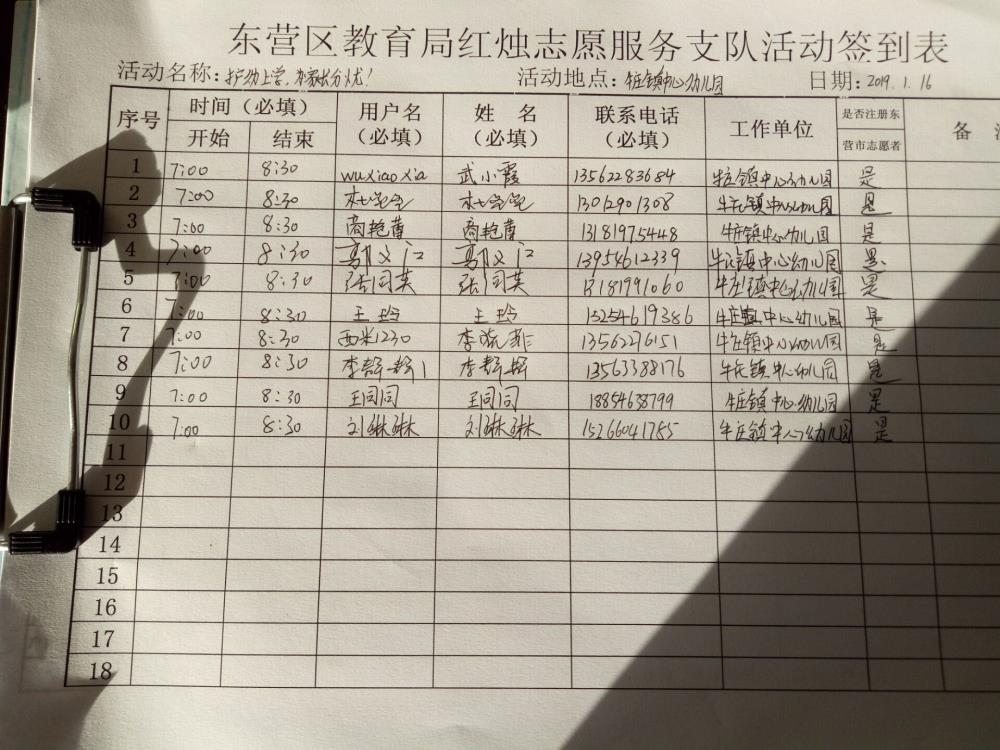 东营区教育局红烛志愿服务支队活动签到表
活动名称：护幼上学，为家长分忧！ 活动地点：牛庄镇中心幼儿园 日期：2019.1.16
序号 时间（必填） 用户名（必填） 姓名（必填） 联系电话（必填） 工作单位 是否注册东营市志愿者 备
开始 结束
1 7:00 8:30 wuxiaoxia 武小霞 13562283684 牛庄镇中心幼儿园 是
2 7:00 8:30 杜莹莹 杜莹莹 13012901308 牛庄镇中心幼儿园 是
3 7:00 8:30 商艳蕾 商艳蕾 13181975448 牛庄镇中心幼儿园 是
4 7:00 8:30 13954612339 牛庄镇中心幼儿园 是
5 7:00 8:30 张同英 张同英 13181991060 牛庄镇中心幼儿园 是
6 7:00 8:30 王玲 王玲 15254619386 牛庄镇中心幼儿园 是
7 7:00 8:30 西米1230 李 13562276151 牛庄镇中心幼儿园 是
8 7:00 8:30 李 李 13563388176 牛庄镇中心幼儿园 是
9 7:00 8:30 王同同 王同同 18854638799 牛庄镇中心幼儿园 是
10 7:00 8:30 刘琳琳 刘琳琳 15266041755 牛庄镇中心幼儿园 是
11
12
13
14
15
16
17
18